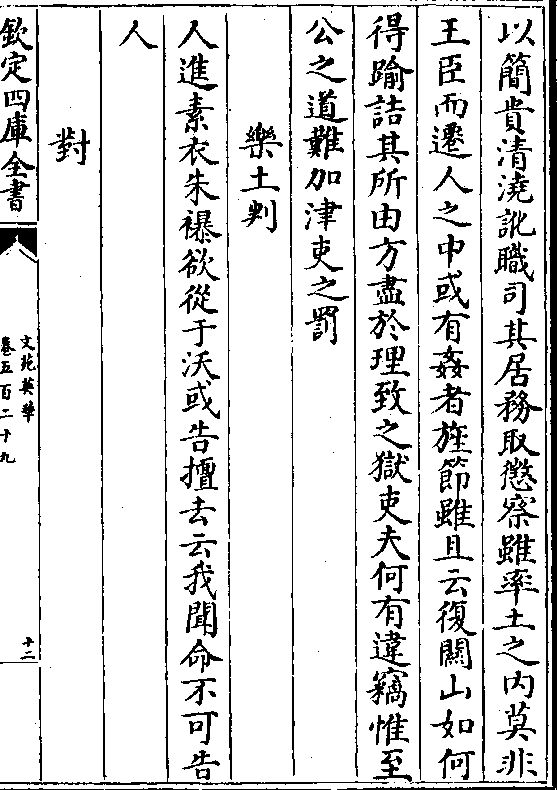 以簡貴清澆訛職司其居務取懲察雖率土之内莫非
王臣而遷人之中或有姦者旌節雖且云復關山如何
得踰詰其所由方盡於理致之獄吏夫何有違竊惟至
公之道難加津吏之罰
樂土判
人進素衣朱襮欲從于沃或告擅去云我聞命不可告
人
對
欽定四庫全書
文苑英華
卷五百二十九
十二